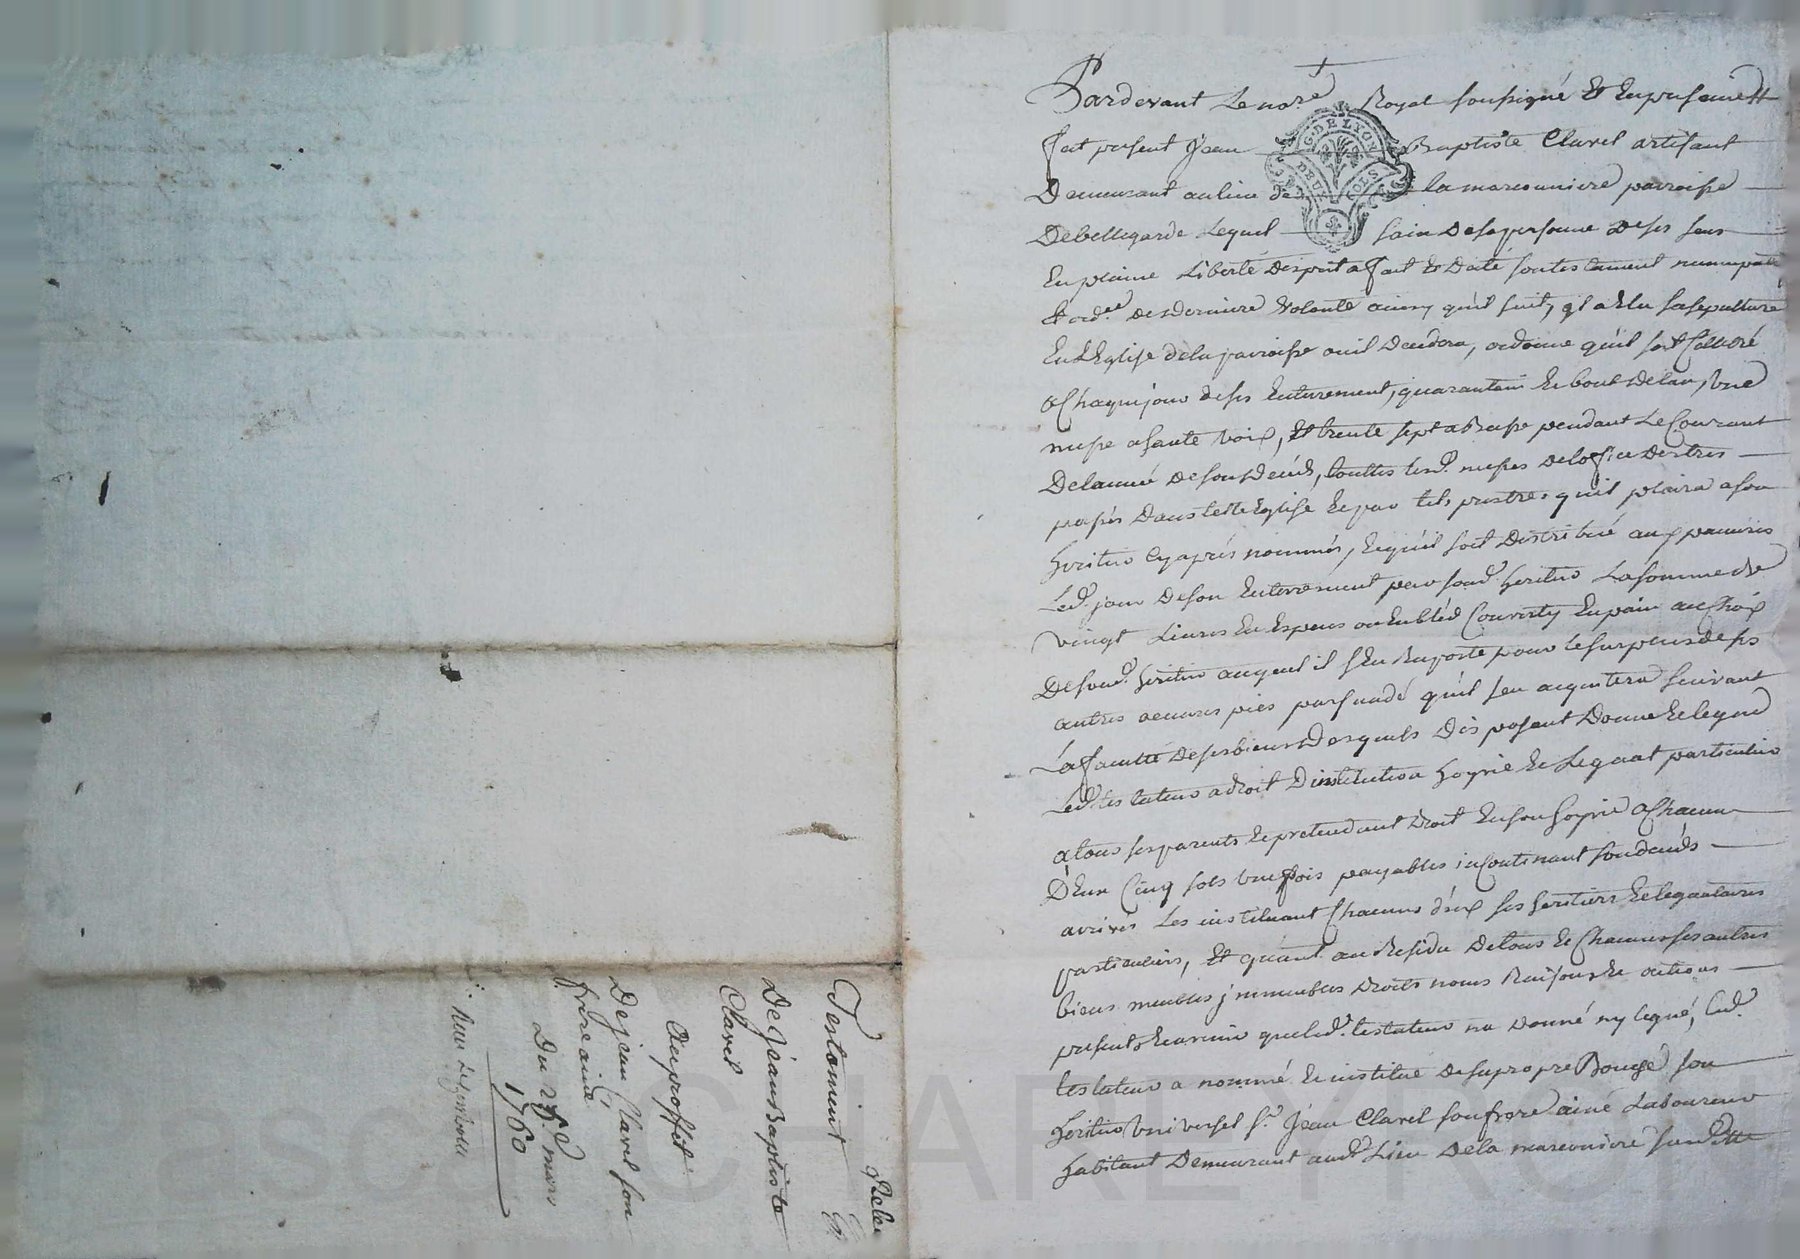 Pardevant Le no.re Royal soussigné Et En presence Et
fut present Jean Baptiste Clavel artisant
Demeurant au lieu de la marconniere parroisse
De bellegarde Lequel sain De sa personne De ses sens
En plaine Liberté desprit a fait Et Daté son testament nuncupatif
Et ord.ce De derniere Volonté ainsy qu'il suit, ql a Elu sa sepulture
En L'Eglise de la parroisse ou il Decedera, ordonne qu'il soit Cellebré
a Chaque jour de ses Enterrement, quarantain Et bout De lan, Une
messe a haute Voix, Et trente sept a Basse pendant Le Courant
De lannée De son Deces, touttes lesd. messes De loffice Des tres
passés Dans lette Eglise Et par tels prestres qu'il plaira a son
heritier Cy après nommés, Et qu'il soit Distribué aux pauvres
Led. jour De son Enterrement par sond. heritier La somme de
vingt Livres En Especes ou En bled Converty En pain au Choix
De soud. heritier auquel il s'En Raporte pour le surplus de ses
autres oeuvres pies persuadé qu'il sen acquitera suivant
La faculté De ses biens Desquels Disposant Donne Et legue
Led. testateur a droit D'institution hoyrie Et Legaat particulier
a tous ses parents Et pretendant Droit En son hoyrie a Chacun
D'Eux Cinq sols une fois payables incontinant son decès
arrivés Les instituant Chacuns d'eux ses heritiers Et legaataires
particuliers, Et quant au Residu De tous Et Chacuns ses autres
biens meubles immeubles Droits noms Raisons Et actions
presents Et avenir que led. testateur na Donné ny legué, led.
testateur a nommé Et institué De sa propre Bouche son
heritier Universel s.r Jean Clavel son frere ainé Laboureur
habitant Demeurant aud. Lieu De la marconniere
Testament
De Jean Baptiste
Clavel
Au proffit
De jean Clavel son
frere ainé
Du 28.e mars
1760
G. DE LYON
DEUX SOLS
asso CHAREYRON